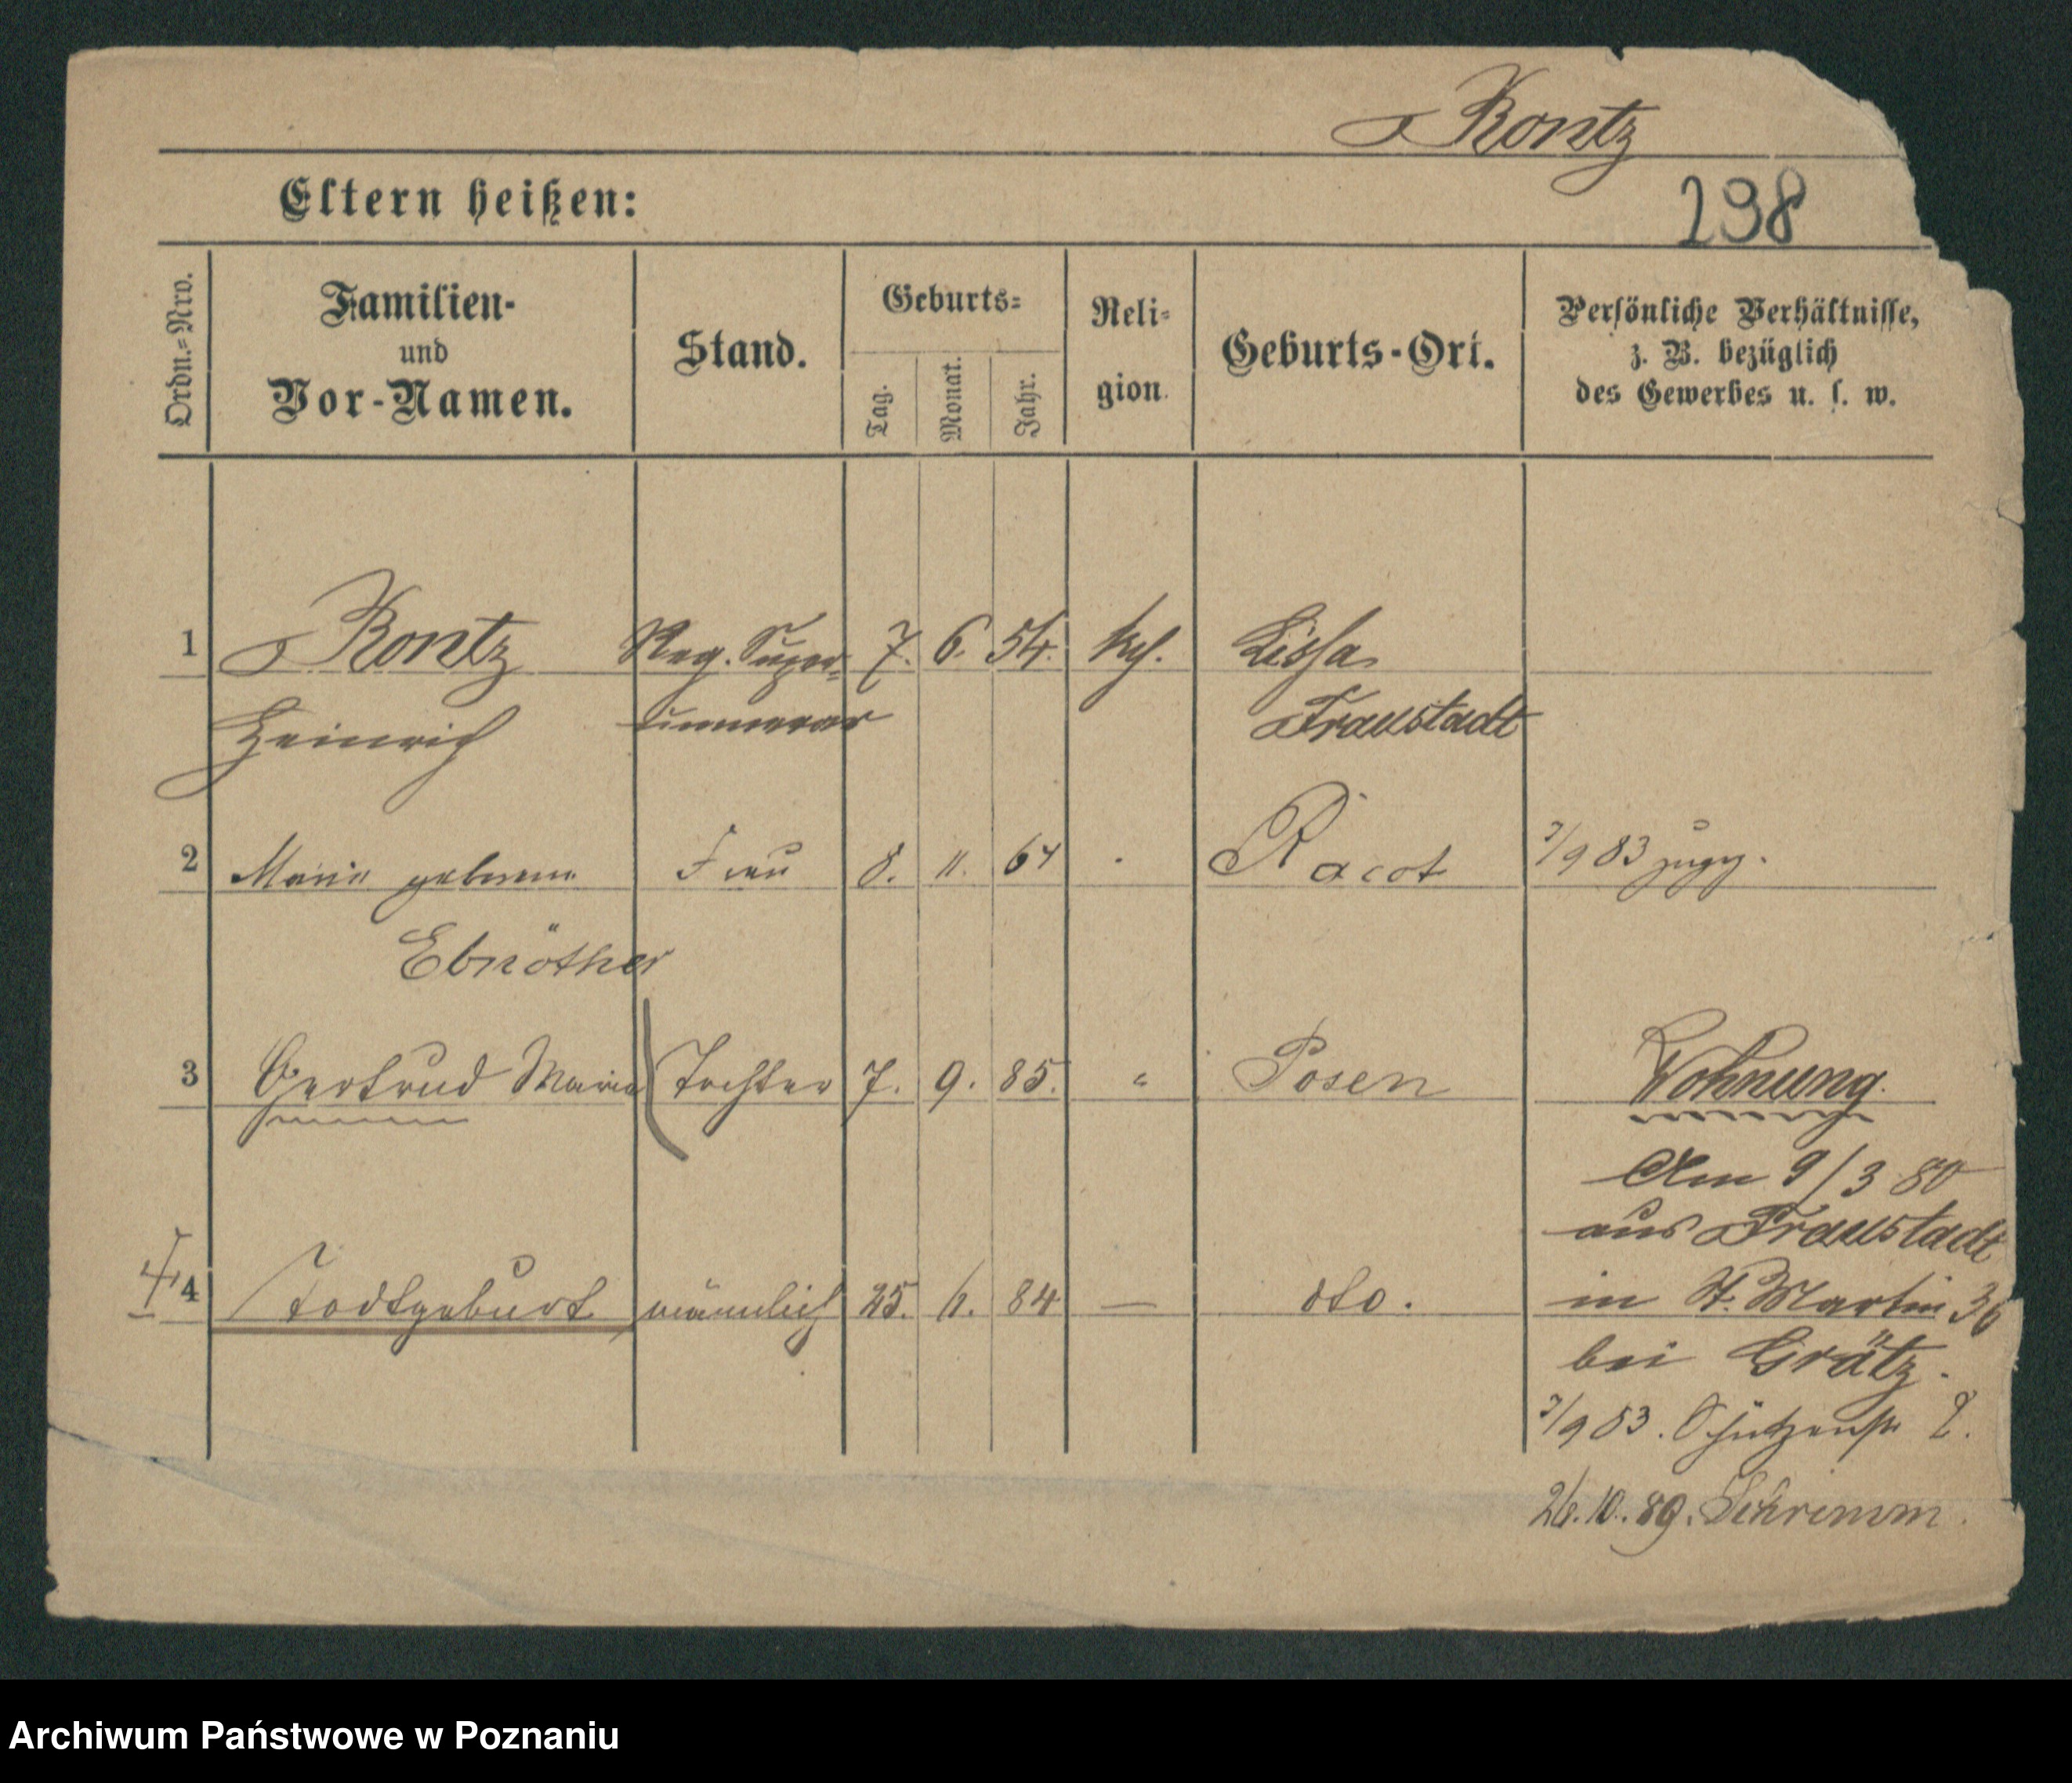 Rontz
298
Eltern heißen:
Ordn.=Nro.
Familien-
und
Vor-Namen.
Stand.
Geburts=
Tag.
Monat.
Jahr.
Reli=
gion.
Geburts-Ort.
Persönliche Verhältnisse,
z. B. bezüglich
des Gewerbes u. s. w.
1 Rontz Reg. Super= 7. 6. 54. Lissa
Heinrich numerar Fraustadt
2 Maria geborene Frau 8. 11. 64 Racot 7/9 83 zugz.
Ebnöther
3 Gertrud Maria Tochter 7. 9. 85. " Posen Wohnung.
Am 9/3 80
aus Fraustadt
4 Todtgeburt männlich 25. 6. 84 — dto. in St. Martin 36
bei Grätz.
7/9 83. Schützenstr 2.
26.10.89. Schrimm.
Archiwum Państwowe w Poznaniu